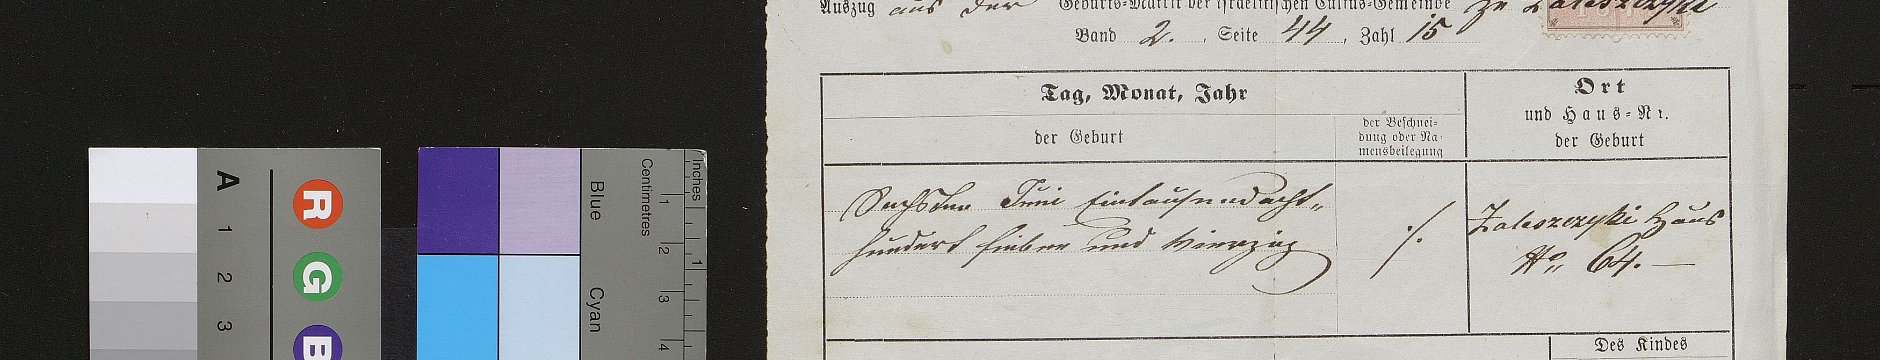 Auszug aus der Geburts-Matrik der israelitischen Cultus-Gemeinde zu Zaleszczyki
Band 2. , Seite 44 , Zahl 15
Tag, Monat, Jahr
der Geburt
der Beschnei-
dung oder Na-
mensbeilegung
Ort
und Haus-Nr.
der Geburt
Sechsten Juni Eintausendacht„
hundert sieben und vierzig
./.
Zaleszczyki Haus
No 64. —
Des Kindes
A
1
2
3
R
G
B
Blue
Cyan
Centimetres
1
2
3
4
Inches
1